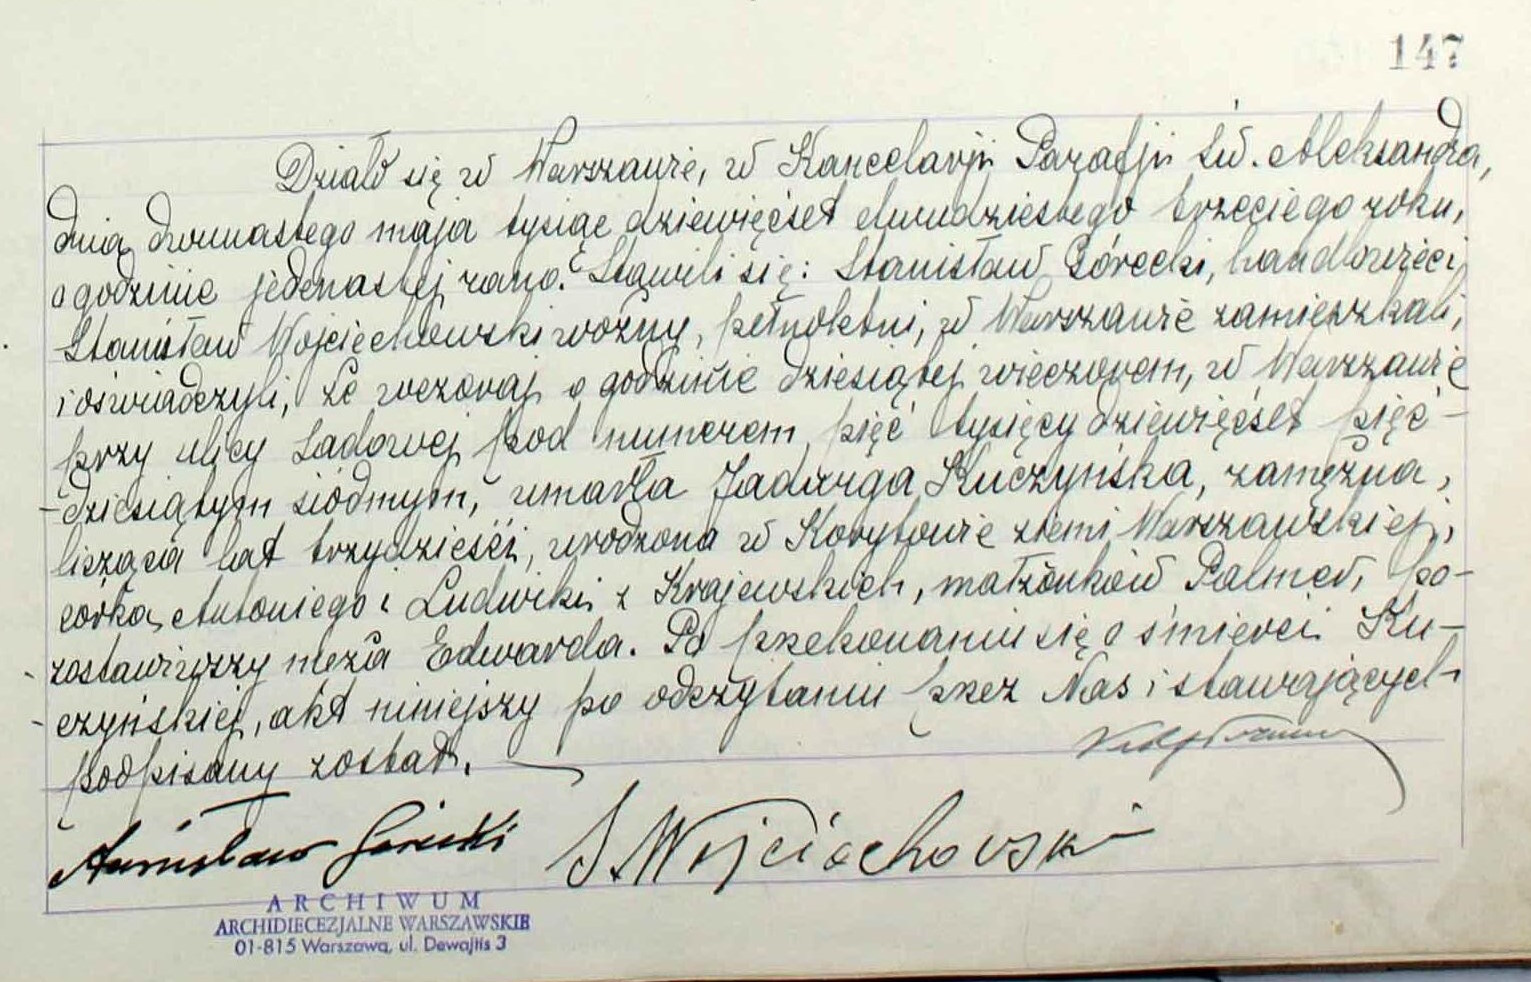 147
Działo się w Warszawie, w Kancelarji Parafji Św. Aleksandra,
dnia dwunastego maja tysiąc dziewięćset dwudziestego trzeciego roku,
o godzinie jedenastej rano. Stawili się: Stanisław Górecki, handlowiec i
Stanisław Wojciechowski woźny, pełnoletni, w Warszawie zamieszkali,
i oświadczyli, że wczoraj o godzinie dziesiątej wieczorem, w Warszawie
przy ulicy Sadowej pod numerem pięć tysięcy dziewięćset pięć-
-dziesiątym siódmym, umarła Jadwiga Kuczyńska, zamężna,
licząca lat trzydzieści, urodzona w Korytowie ziemi Warszawskiej,
córka Antoniego i Ludwiki z Krajewskich, małżonków Palmer, po-
-zostawiwszy męża Edwarda. Po przekonaniu się o śmierci Ku-
-czyńskiej, akt niniejszy po odczytaniu przez Nas i stawających
podpisany został.
Stanisław Górecki S. Wojciechowski
ARCHIWUM
ARCHIDIECEZJALNE WARSZAWSKIE
01-815 Warszawa, ul. Dewajtis 3